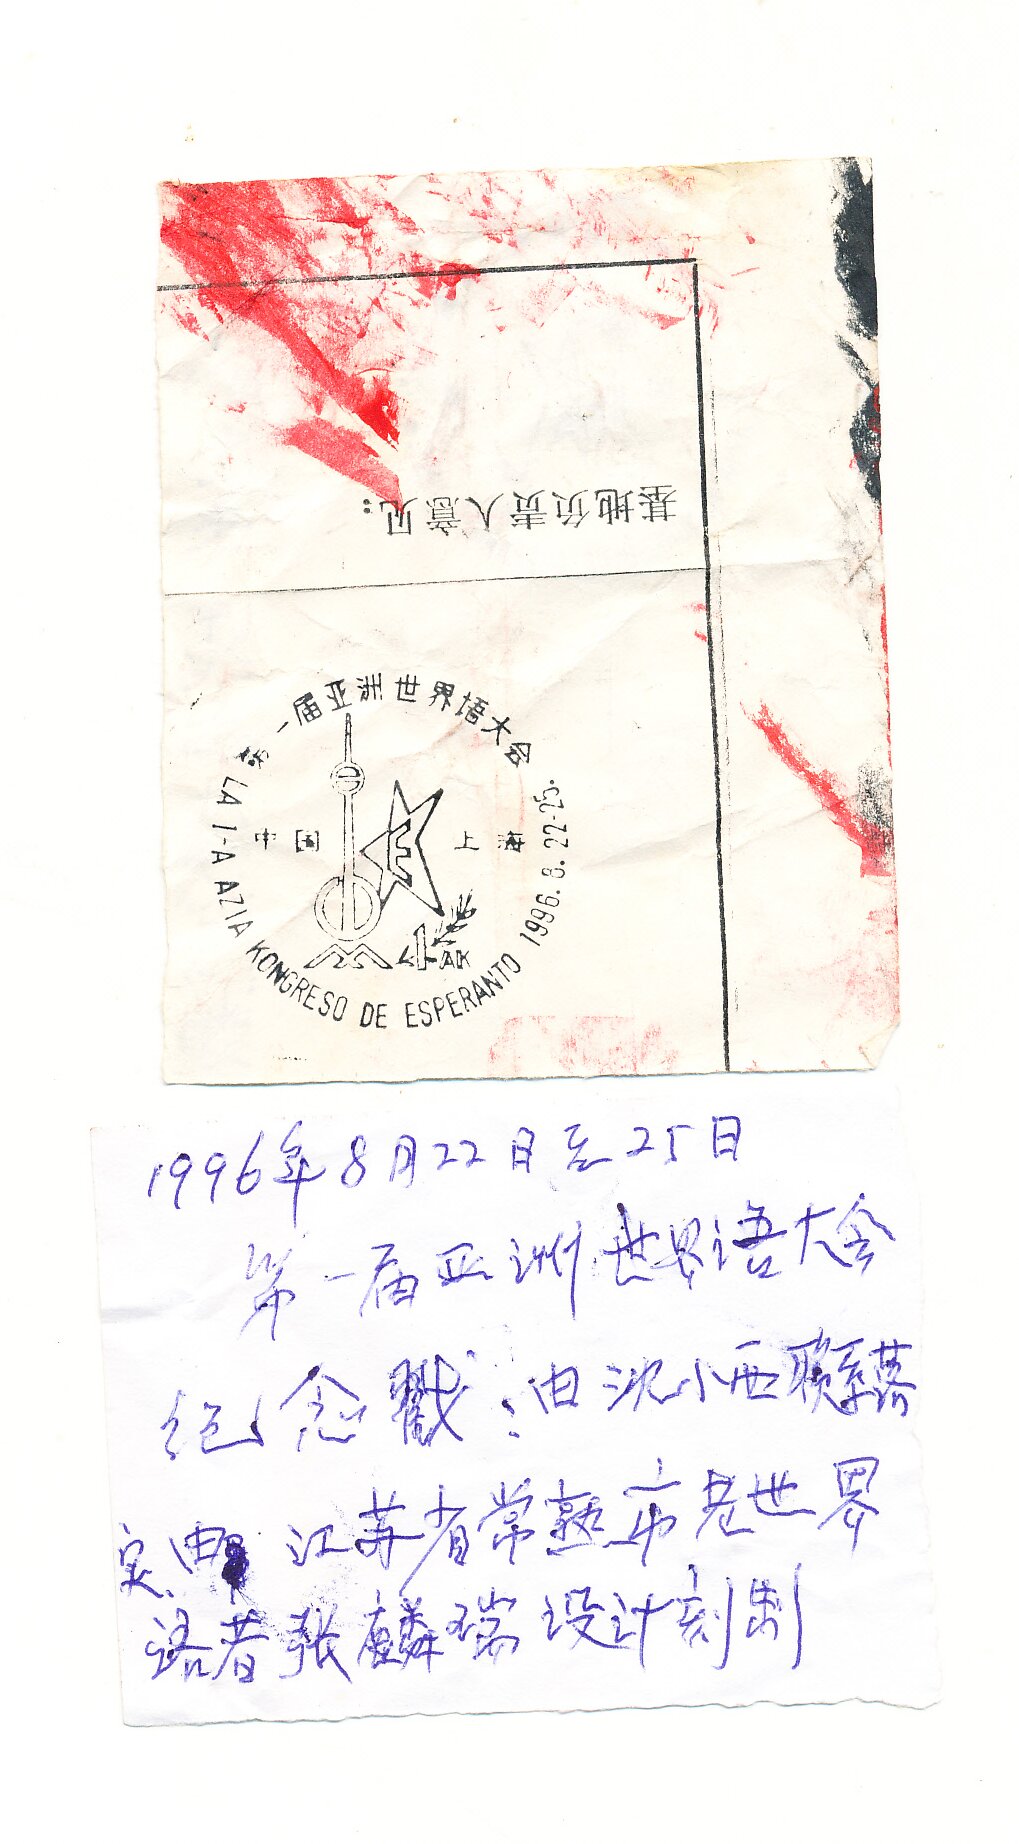 基地负责人意见：
第一届亚洲世界语大会
中国 上海
E
1-AK
LA 1-A AZIA KONGRESO DE ESPERANTO 1996.8.22-25.
1996年8月22日至25日
第一届亚洲世界语大会
纪念戳：由沈小西联系落
实，由江苏省常熟市老世界
语者张麟瑞设计刻制